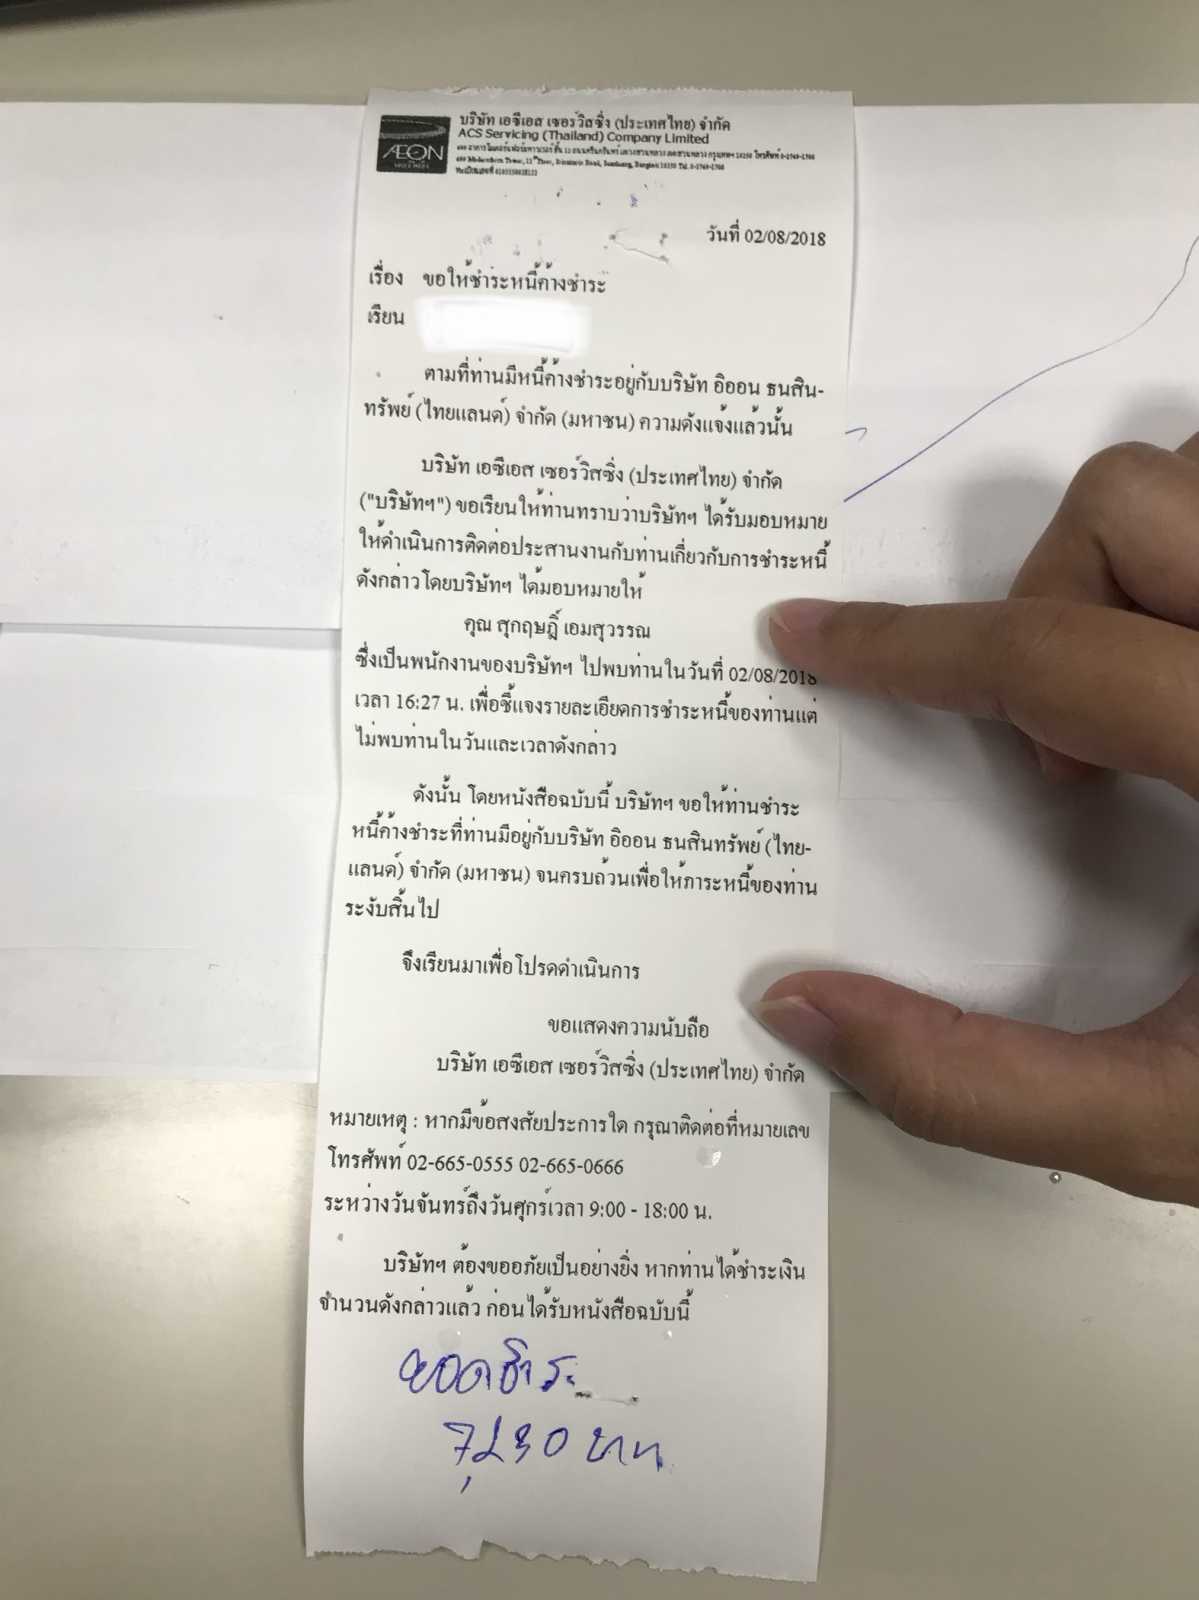 บริษัท เอซีเอส เซอร์วิสซิ่ง (ประเทศไทย) จำกัด
ACS Servicing (Thailand) Company Limited
AEON
วันที่ 02/08/2018
เรื่อง ขอให้ชำระหนี้ค้างชำระ
เรียน
ตามที่ท่านมีหนี้ค้างชำระอยู่กับบริษัท อิออน ธนสิน-
ทรัพย์ (ไทยแลนด์) จำกัด (มหาชน) ความดังแจ้งแล้วนั้น
บริษัท เอซีเอส เซอร์วิสซิ่ง (ประเทศไทย) จำกัด
("บริษัทฯ") ขอเรียนให้ท่านทราบว่าบริษัทฯ ได้รับมอบหมาย
ให้ดำเนินการติดต่อประสานงานกับท่านเกี่ยวกับการชำระหนี้
ดังกล่าวโดยบริษัทฯ ได้มอบหมายให้
คุณ สุกฤษฎิ์ เอมสุวรรณ
ซึ่งเป็นพนักงานของบริษัทฯ ไปพบท่านในวันที่ 02/08/2018
เวลา 16:27 น. เพื่อชี้แจงรายละเอียดการชำระหนี้ของท่านแต่
ไม่พบท่านในวันและเวลาดังกล่าว
ดังนั้น โดยหนังสือฉบับนี้ บริษัทฯ ขอให้ท่านชำระ
หนี้ค้างชำระที่ท่านมีอยู่กับบริษัท อิออน ธนสินทรัพย์ (ไทย-
แลนด์) จำกัด (มหาชน) จนครบถ้วนเพื่อให้ภาระหนี้ของท่าน
ระงับสิ้นไป
จึงเรียนมาเพื่อโปรดดำเนินการ
ขอแสดงความนับถือ
บริษัท เอซีเอส เซอร์วิสซิ่ง (ประเทศไทย) จำกัด
หมายเหตุ : หากมีข้อสงสัยประการใด กรุณาติดต่อที่หมายเลข
โทรศัพท์ 02-665-0555 02-665-0666
ระหว่างวันจันทร์ถึงวันศุกร์เวลา 9:00 - 18:00 น.
บริษัทฯ ต้องขออภัยเป็นอย่างยิ่ง หากท่านได้ชำระเงิน
จำนวนดังกล่าวแล้ว ก่อนได้รับหนังสือฉบับนี้
ยอดชำระ
บาท